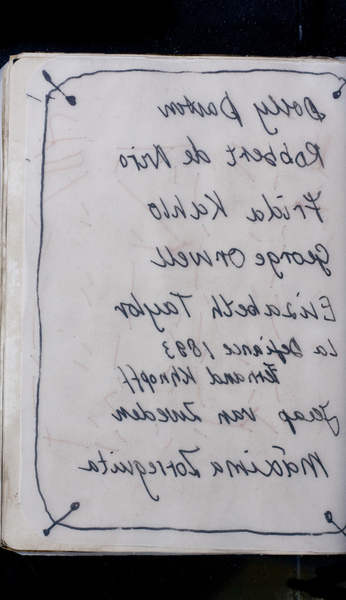 Dolly Parton
Robbert de Niro
Frida Kahlo
George Orwell
Elizabeth Taylor
La Defiance 1893
Fernand Khnopff
Jaap van Zweden
Máxima Zorreguita